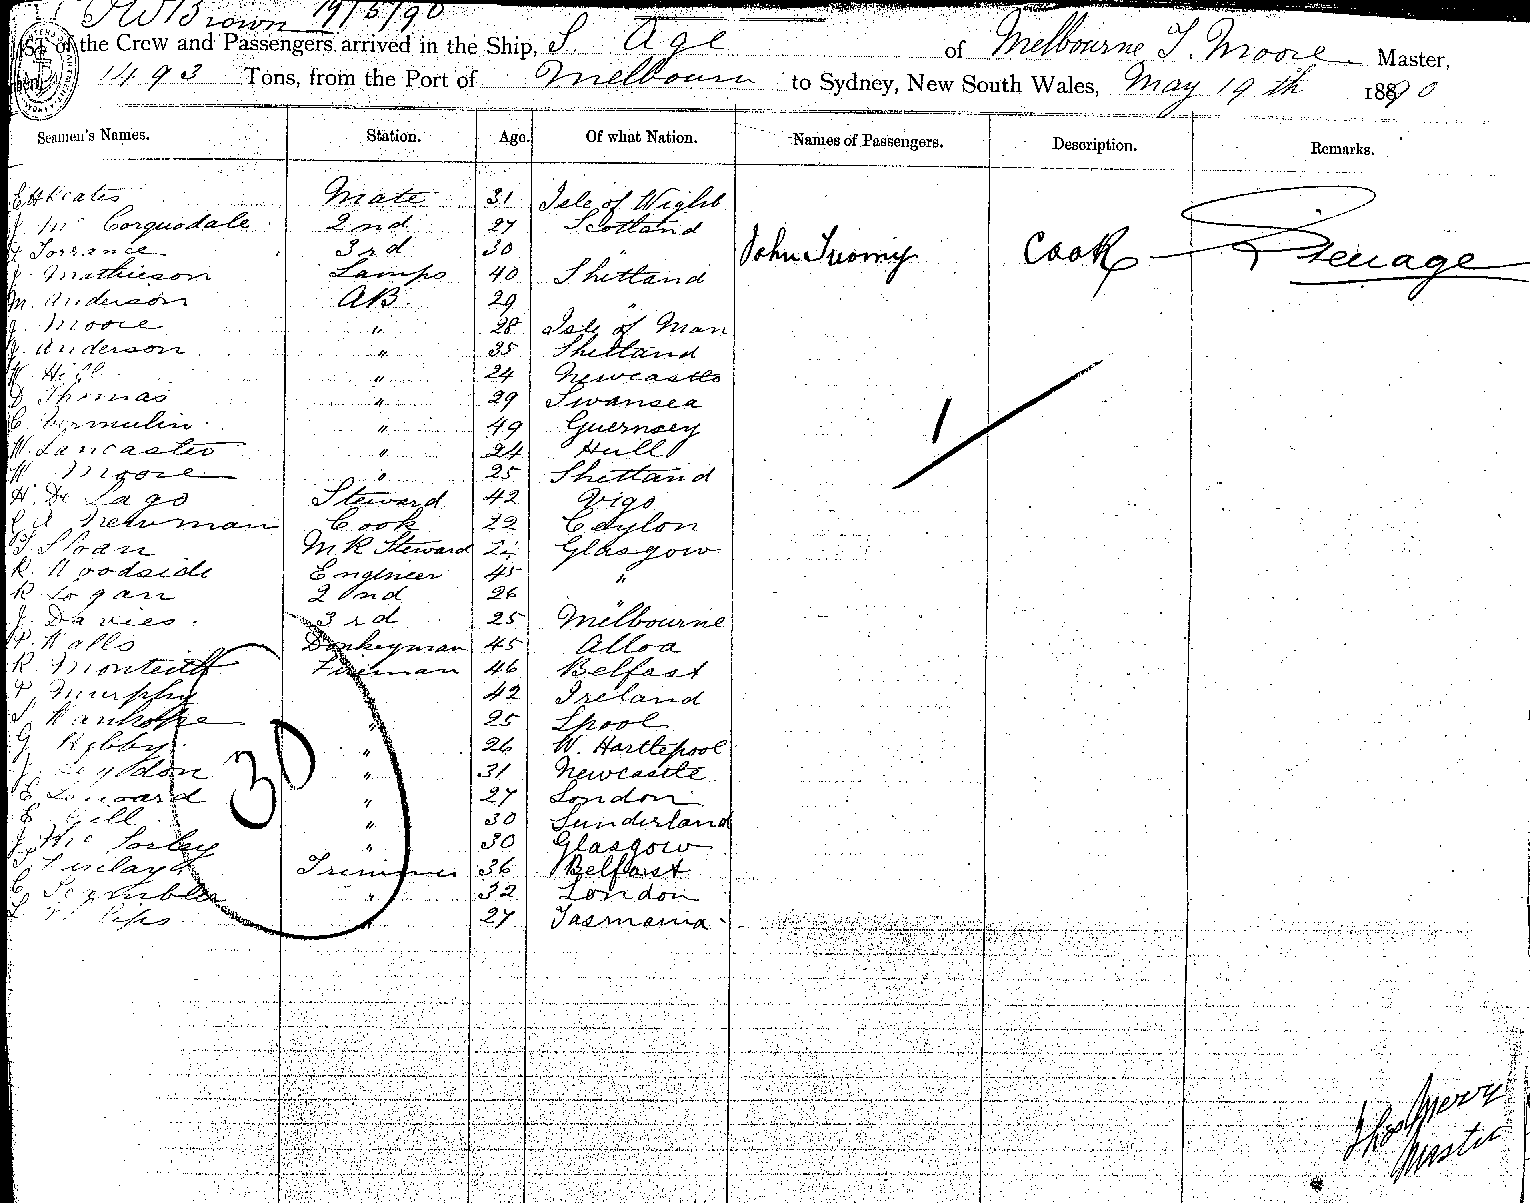 Brown 19/5/90
LIST of the Crew and Passengers arrived in the Ship, S. Age of Melbourne T. Moore Master,
1493 Tons, from the Port of Melbourn to Sydney, New South Wales, May 19th 1890
Seamen's Names. Station. Age. Of what Nation. Names of Passengers. Description. Remarks.
Keates Mate 31 Isle of Wight
J. Mc Corquodale 2nd 27 Scotland
Torrance 3rd 30 " John Tuomy Cook Steerage
Mathieson Lamps 40 Shetland
M. Anderson AB. 29 "
J. Moore " 28 Isle of Man
Anderson " 35 Shetland
W. Hill " 24 Newcastle
D Thomas " 29 Swansea
C. Vermulin " 49 Guernsey
W. Lancaster " 24 Hull
W Moore " 25 Shetland
H. De Lago Steward 42 Vigo
C A Newman Cook 22 Ceylon
Sloan M R Steward Glasgow
R. Woodside Engineer 45 "
R Logan 2nd 26 "
J. Davies 3rd 25 Melbourne
P. Walls Donkeyman 45 Alloa
R. Monteith Fireman 46 Belfast
P. Murphy " 42 Ireland
Wauhope " 25 Lpool
G. " 26 W. Hartlepool
J. " 31 Newcastle
E Leonard " 27 London
E. Gill " 30 Sunderland
J. Mc Sorley " 30 Glasgow
Finlay Trimmer 36 Belfast
C. " 32 London
" 27 Tasmania
1
30
Master